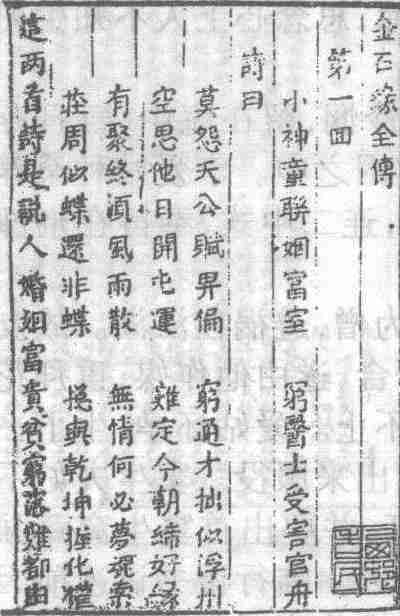 金石緣全傳
第一回
小神童聯姻富室 窮醫士受害官舟
詩曰
莫怨天公賦畀偏 窮通才拙似浮州
空思他日開屯運 難定今朝締好緣
有聚終須風雨散 無情何必夢魂牽
莊周似蝶還非蝶 總與乾坤握化權
這両首詩是說人婚姻富貴貧窮落難都由